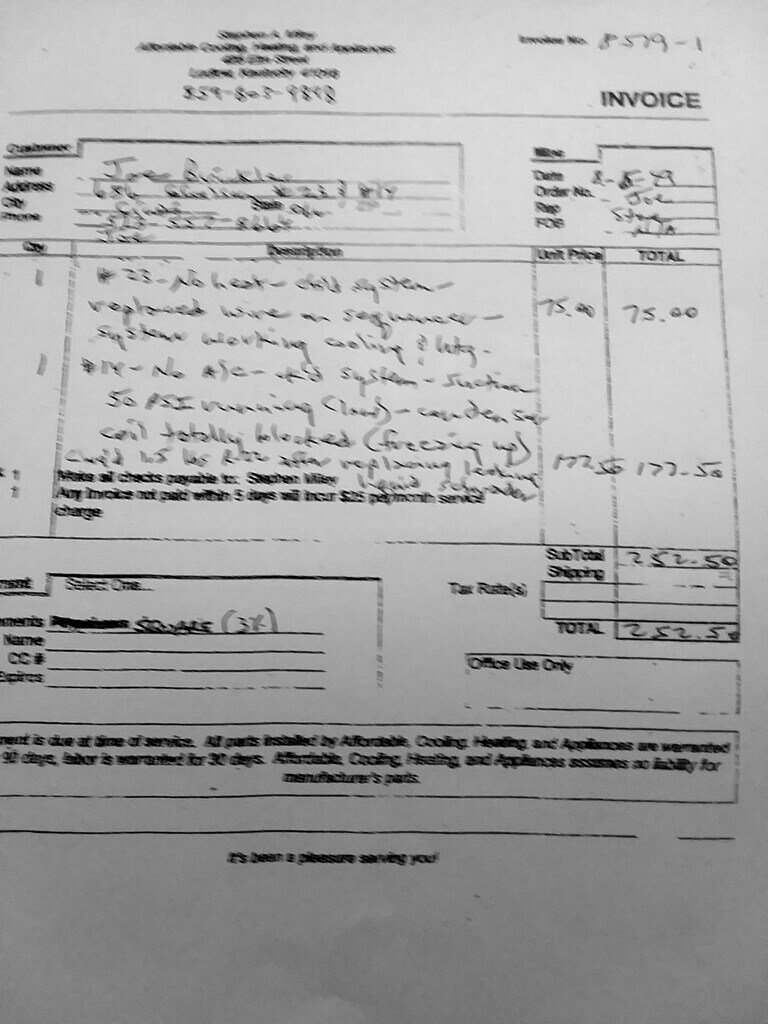 Stephen A. Wiley
Affordable Cooling, Heating, and Appliances
Elm Street
Ludlow, Kentucky
859-803-9898
Invoice No. 8579-1
INVOICE
Customer
Name Joe
Address # 23 & #14
City State
Phone
Joe
Misc
Date
Order No. Joe
Rep Steve
FOB N/A
Qty Description Unit Price TOTAL
1 # 23 - No heat - chk'd system -
replaced wire on sequencer - 75.00 75.00
system working cooling & htg.
1 #14 - No A/C - chk'd system - Suction
50 PSI running (low) - condenser
coil totally blocked (freezing up)
1.5 lbs R22 after replacing leaking 177.50 177.50
1 Make all checks payable to: Stephen Wiley liquid schrader
1 Any invoice not paid within 5 days will incur $25 per/month service
charge
SubTotal 252.50
Shipping
ment Select One...
Tax Rate(s)
ments SQUARE (3%)
TOTAL 252.50
Name
CC #
Expires
Office Use Only
ment is due at time of service. All parts installed by Affordable, Cooling, Heating, and Appliances are warranted
90 days, labor is warranted for 30 days. Affordable, Cooling, Heating, and Appliances assumes no liability for
manufacturer's parts.
It's been a pleasure serving you!